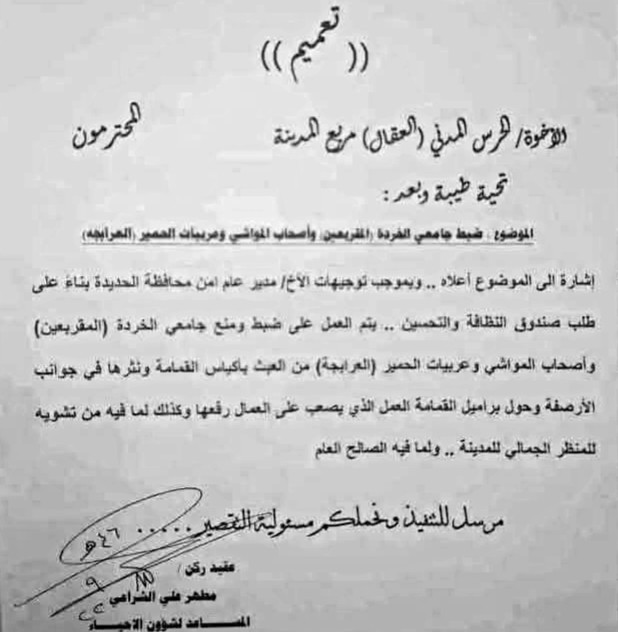 تعميم
(( ))
الاخوة/ الحرس المدني (العقال) مربع المدينة المحترمون
تحية طيبة وبعد :
الموضوع : ضبط جامعي الخردة (المقربعين) وأصحاب المواشي وعربيات الحمير (العرابجه)
إشارة الى الموضوع أعلاه .. وبموجب توجيهات الأخ/ مدير عام امن محافظة الحديدة بناءً على
طلب صندوق النظافة والتحسين .. يتم العمل على ضبط ومنع جامعي الخردة (المقربعين)
وأصحاب المواشي وعربيات الحمير (العرابجة) من العبث بأكياس القمامة ونثرها في جوانب
الأرصفة وحول براميل القمامة العمل الذي يصعب على العمال رفعها وكذلك لما فيه من تشويه
للمنظر الجمالي للمدينة .. ولما فيه الصالح العام
مرسل للتنفيذ ونحملكم مسئولية التقصير .....
عقيد ركن /
مطهر علي الشراعي
المساعد لشؤون الاحياء